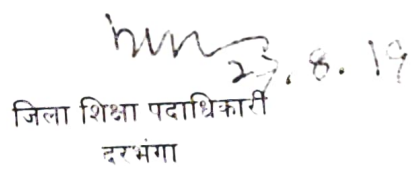 23.8.19
जिला शिक्षा पदाधिकारी
दरभंगा